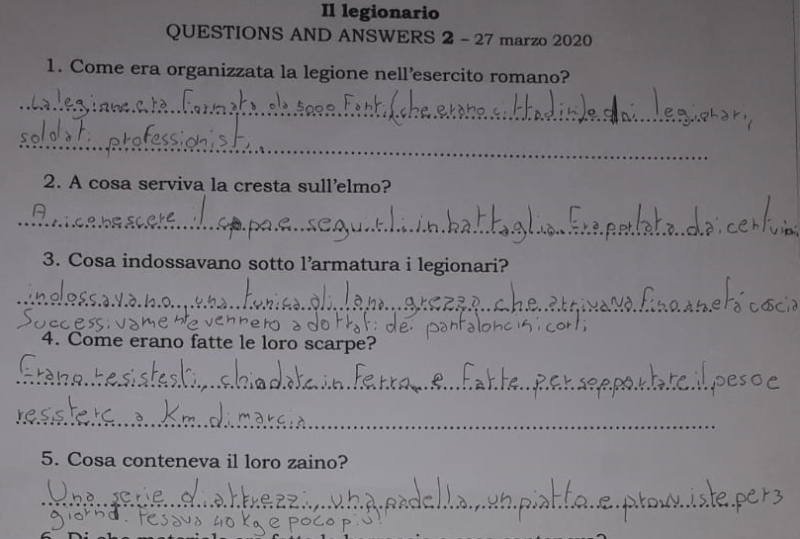 Il legionario
QUESTIONS AND ANSWERS 2 – 27 marzo 2020
1. Come era organizzata la legione nell'esercito romano?
La legione era formata da 5000 fanti (che erano cittadini) e da i legionari,
soldati professionisti.
2. A cosa serviva la cresta sull'elmo?
A riconescere il capo e seguirli in battaglia. Era portata dai centurioni
3. Cosa indossavano sotto l'armatura i legionari?
indossavano una tunica di lana grezza che arrivava fino a metà coscia
Successivamente vennero adottati dei pantaloncini corti
4. Come erano fatte le loro scarpe?
Erano resistesti, chiodate in ferro e fatte per sopportare il peso e
resistere a Km di marcia
5. Cosa conteneva il loro zaino?
Una serie di attrezzi, una padella, un piatto e provviste per 3
giorni. Pesava 40 kg e poco più!